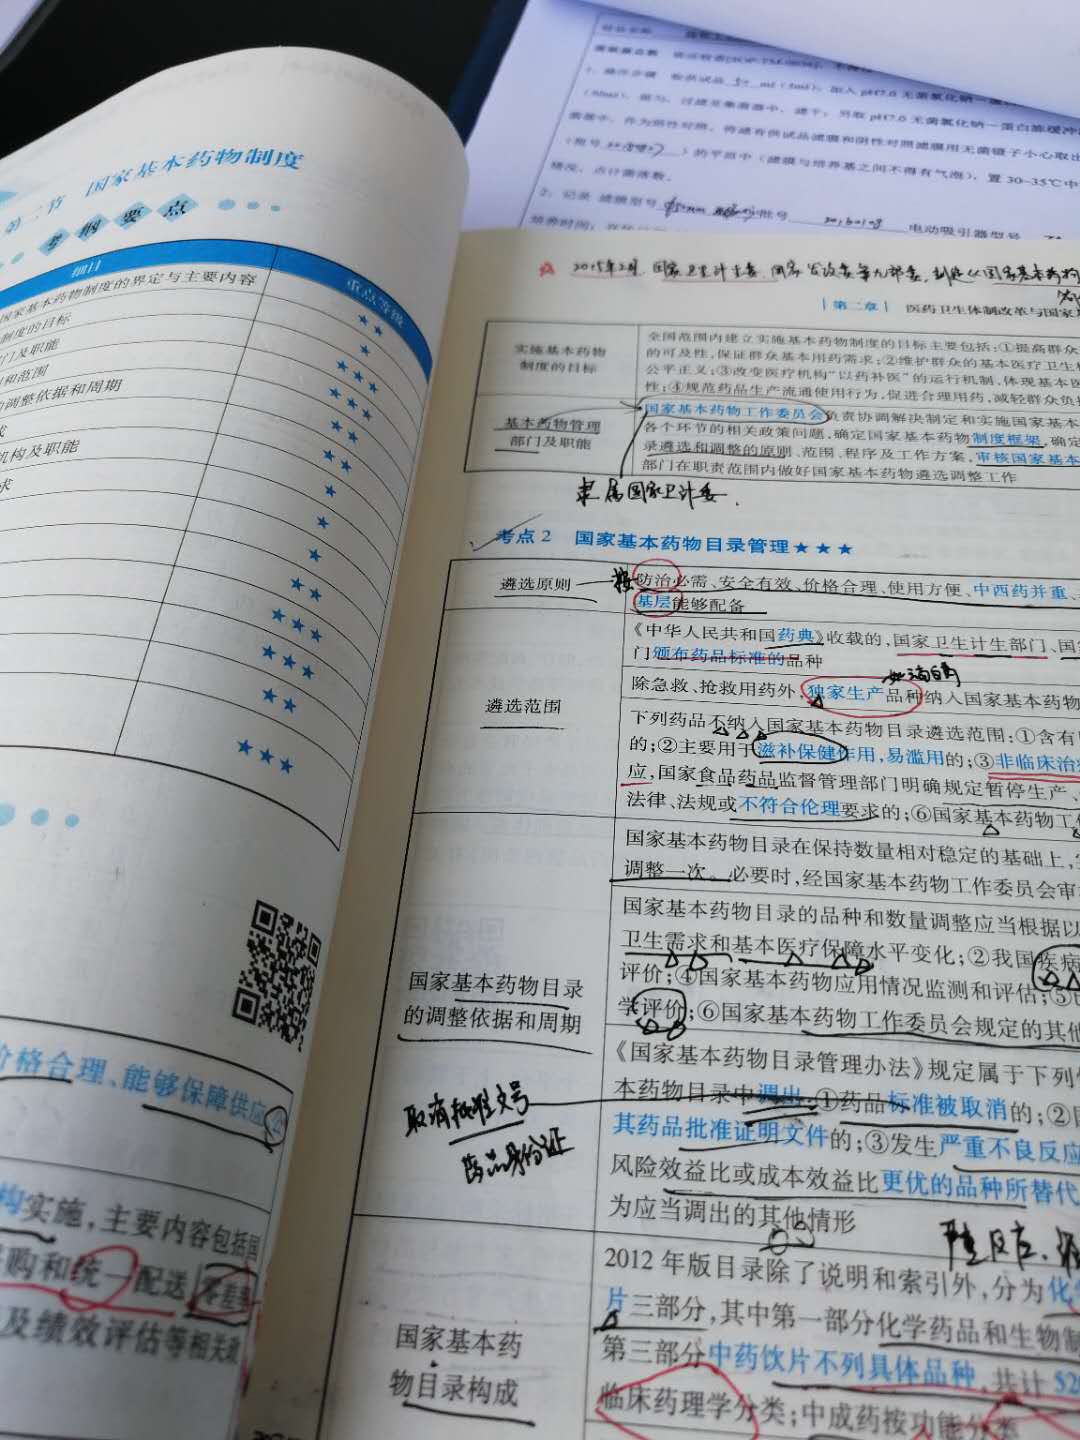 第二节 国家基本药物制度
考纲要点
细目
重点等级
国家基本药物制度的界定与主要内容
★★
制度的目标
★
门及职能
★★★
和范围
★★★
调整依据和周期
★★★
★
机构及职能
★
求
★
★★
★★★
★★★
★★
★★★
价格合理、能够保障供应
构实施，主要内容包括国
购和统一配送
及绩效评估等相关政
1、操作步骤 取供试品50ml(5ml)，加入pH7.0无菌氯化钠—蛋白
过滤至集菌器中，滤干；另取pH7.0无菌氯化钠—蛋白胨缓冲
菌器中，作为阴性对照，将滤有供试品滤膜和阴性对照滤膜用无菌镊子小心取出
的平皿中（滤膜与培养基之间不得有气泡），置30~35℃中
情况，点计菌落数。
2、记录 滤膜型号
批号
电动吸引器型号
培养时间：
2015年2月，国家卫生计生委、国家发改委等九部委，制定《国家基本药物
第二章 医药卫生体制改革与国家
实施基本药物
制度的目标
全国范围内建立实施基本药物制度的目标主要包括：①提高群众
的可及性，保证群众基本用药需求；②维护群众的基本医疗卫生
公平正义；③改变医疗机构“以药补医”的运行机制，体现基本医
性；④规范药品生产流通使用行为，促进合理用药，减轻群众负
基本药物管理
部门及职能
国家基本药物工作委员会负责协调解决制定和实施国家基本
各个环节的相关政策问题，确定国家基本药物制度框架，确定
录遴选和调整的原则、范围、程序及工作方案，审核国家基本
部门在职责范围内做好国家基本药物遴选调整工作
隶属国家卫计委．
考点2 国家基本药物目录管理★★★
遴选原则
按
防治必需、安全有效、价格合理、使用方便、中西药并重、
基层能够配备
遴选范围
《中华人民共和国药典》收载的，国家卫生计生部门、国
门颁布药品标准的品种
如云南白药
除急救、抢救用药外，独家生产品种纳入国家基本药物
下列药品不纳入国家基本药物目录遴选范围：①含有
的；②主要用于滋补保健作用，易滥用的；③非临床治
应，国家食品药品监督管理部门明确规定暂停生产、
法律、法规或不符合伦理要求的；⑥国家基本药物工
国家基本药物目录
的调整依据和周期
国家基本药物目录在保持数量相对稳定的基础上，
调整一次。必要时，经国家基本药物工作委员会审
国家基本药物目录的品种和数量调整应当根据以
卫生需求和基本医疗保障水平变化；②我国疾病
评价；④国家基本药物应用情况监测和评估；⑤
学评价；⑥国家基本药物工作委员会规定的其他
《国家基本药物目录管理办法》规定属于下列
本药物目录中调出：①药品标准被取消的；②
其药品批准证明文件的；③发生严重不良反应
风险效益比或成本效益比更优的品种所替代
为应当调出的其他情形
取消批准文号
药品身份证
国家基本药
物目录构成
2012年版目录除了说明和索引外，分为化
片三部分，其中第一部分化学药品和生物制
第三部分中药饮片不列具体品种，共计520
临床药理学分类；中成药按功能分类